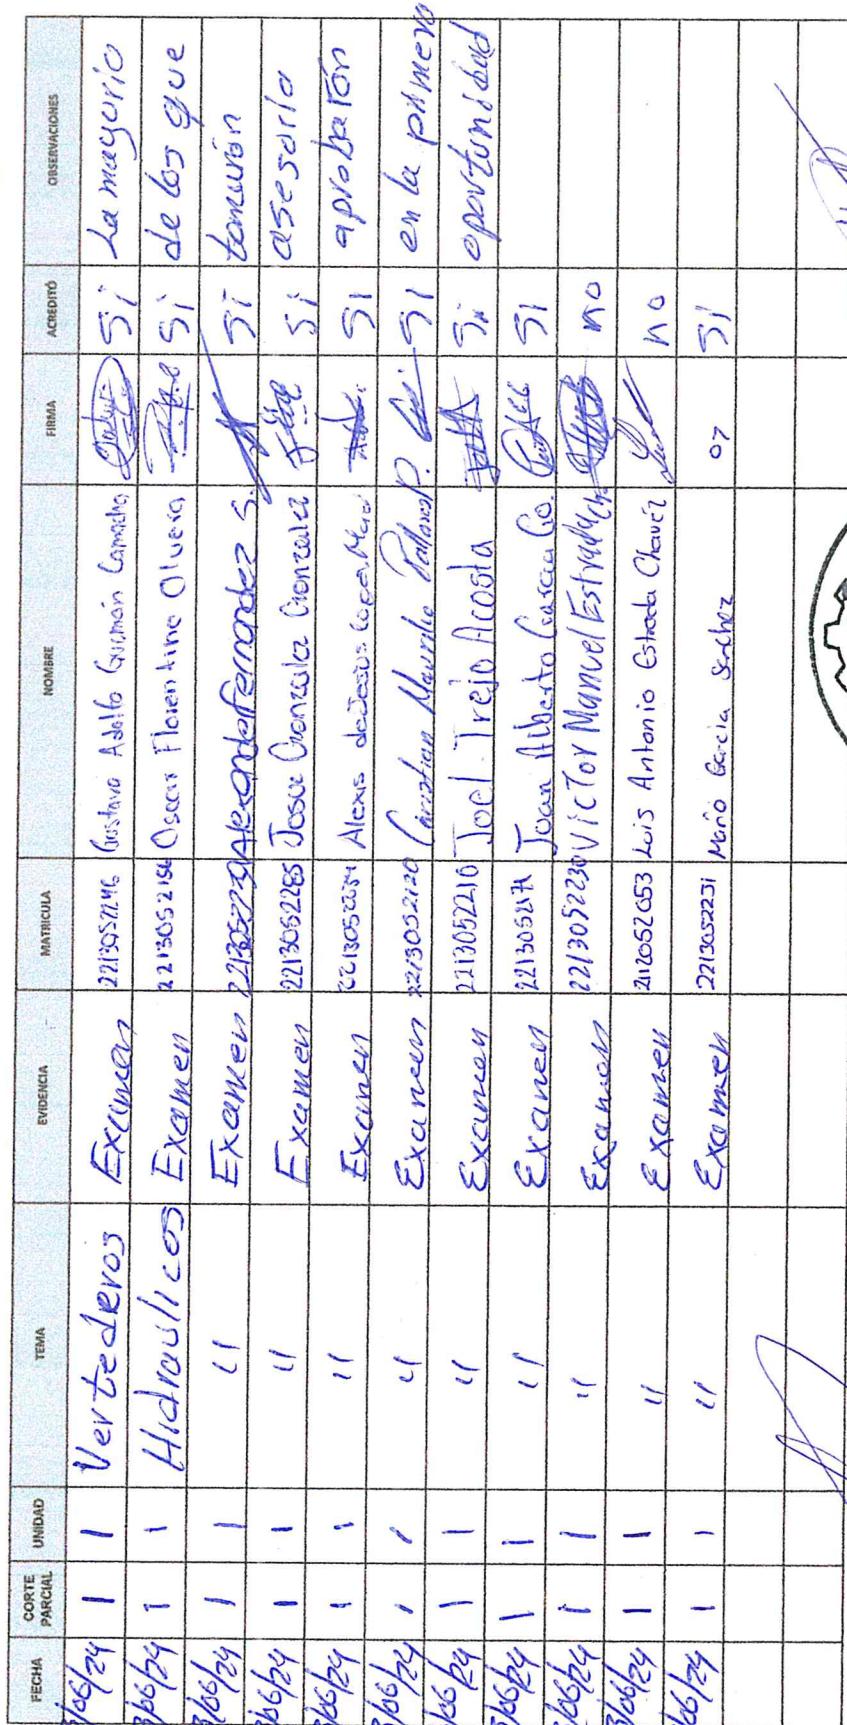 FECHA CORTE PARCIAL UNIDAD TEMA EVIDENCIA MATRICULA NOMBRE FIRMA ACREDITÓ OBSERVACIONES
/06/24 1 1 Vertederos Examen Gustavo Adolfo Guzmán Camacho Si La mayorio
/06/24 1 1 Hidraulicos Examen 2213052156 Oscar Florentino Olvera Si de los que
/06/24 1 1 " Examen Alexander Fernandez S. Si tomarón
/06/24 1 1 " Examen 2213052285 Josue Gonzalez Gonzalez Si asesoría
/06/24 1 1 " Examen Alexis de Jesus Si aprobarón
/06/24 1 1 " Examen 2213052120 Christian Mauricio P. Si en la primera
/06/24 1 1 " Examen 2213052210 Joel Trejo Acosta Si oportunidad
/06/24 1 1 " Examen Joan Alberto Garcia Go. Si
/06/24 1 1 " Examen 2213052230 Victor Manuel Estrada Ch no
/06/24 1 1 " Examen 212052053 Luis Antonio Estrada Chavéz no
/06/24 1 1 " Examen 2213052231 Mario Garcia Sanchez Si